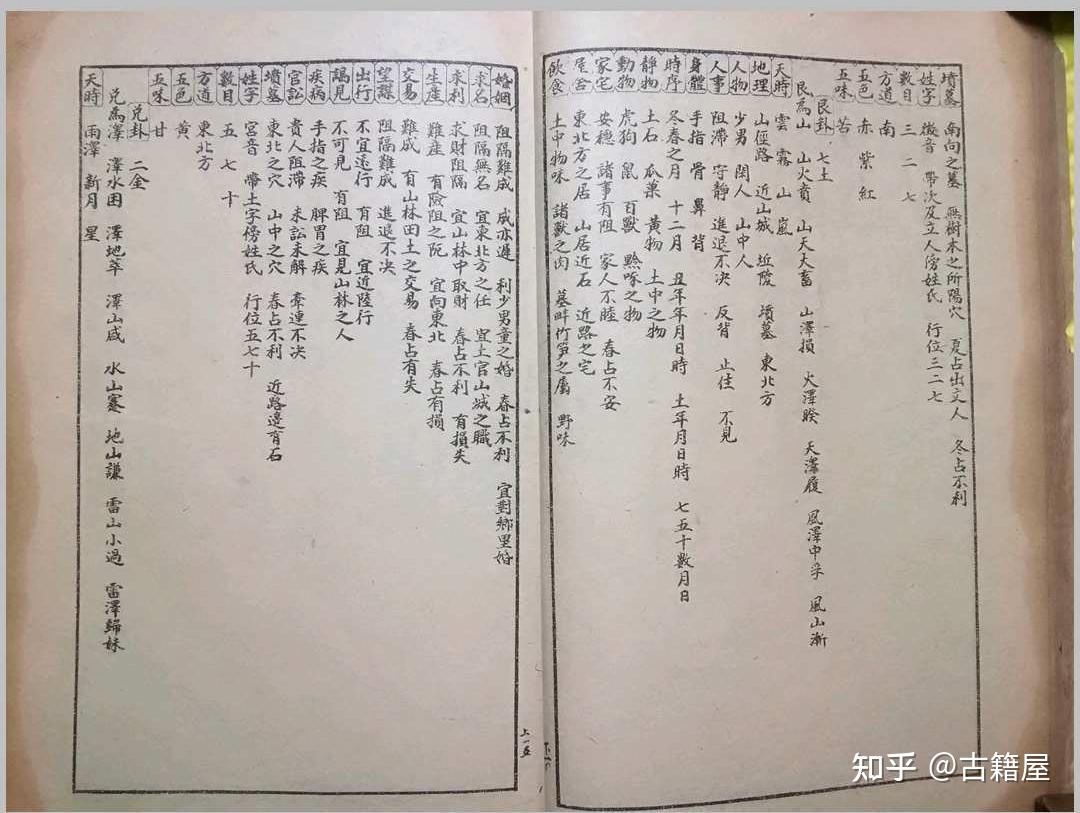 墳墓 南向之墓 無樹木之所陽穴 夏占出文人 冬占不利
姓字 徵音 帶次及立人傍姓氏 行位三二七
數目 三 二 七
方道 南
五色 赤 紫 紅
五味 苦
艮卦 七土
艮為山 山火賁 山天大畜 山澤損 火澤睽 天澤履 風澤中孚 風山漸
天時 雲 霧 山 嵐
地理 山徑路 近山城 近陵 墳墓 東北方
人物 少男 閑人 山中人
人事 阻滯 守靜 進退不决 反背 止住 不見
身體 手指 骨 鼻 背
時序 冬春之月 十二月 丑年年月日時 土年月日時 七五十數月日
靜物 土石 瓜菓 黃物 土中之物
動物 虎狗 鼠 百獸 黔啄之物
家宅 安穩 諸事有阻 家人不睦 春占不安
屋舍 東北方之居 山居近石 近路之宅
飲食 土中物味 諸獸之肉 墓畔竹笋之屬 野味
婚姻 阻隔難成 成亦遲 利少男童之婚 春占不利 宜對鄉里婚
求名 阻隔無名 宜東北方之任 宜土官山城之職
求利 求財阻隔 宜山林中取財 春占不利 有損失
生產 難產 有險阻之阨 宜向東北 春占有損
交易 難成 有山林田土之交易 春占有失
望謀 阻隔難成 進退不决
出行 不宜遠行 有阻 宜近陸行
謁見 不可見 有阻 宜見山林之人
疾病 手指之疾 脾胃之疾
官訟 貴人阻滯 未訟未解 牽連不决
墳墓 東北之穴 山中之穴 春占不利 近路邊有石
姓字 宮音 帶土字傍姓氏 行位五七十
數目 五 七 十
方道 東北方
五色 黃
五味 甘
兌卦 二金
兌為澤 澤水困 澤地萃 澤山咸 水山蹇 地山謙 雷山小過 雷澤歸妹
天時 雨澤 新月 星
上一五
知乎 @古籍屋